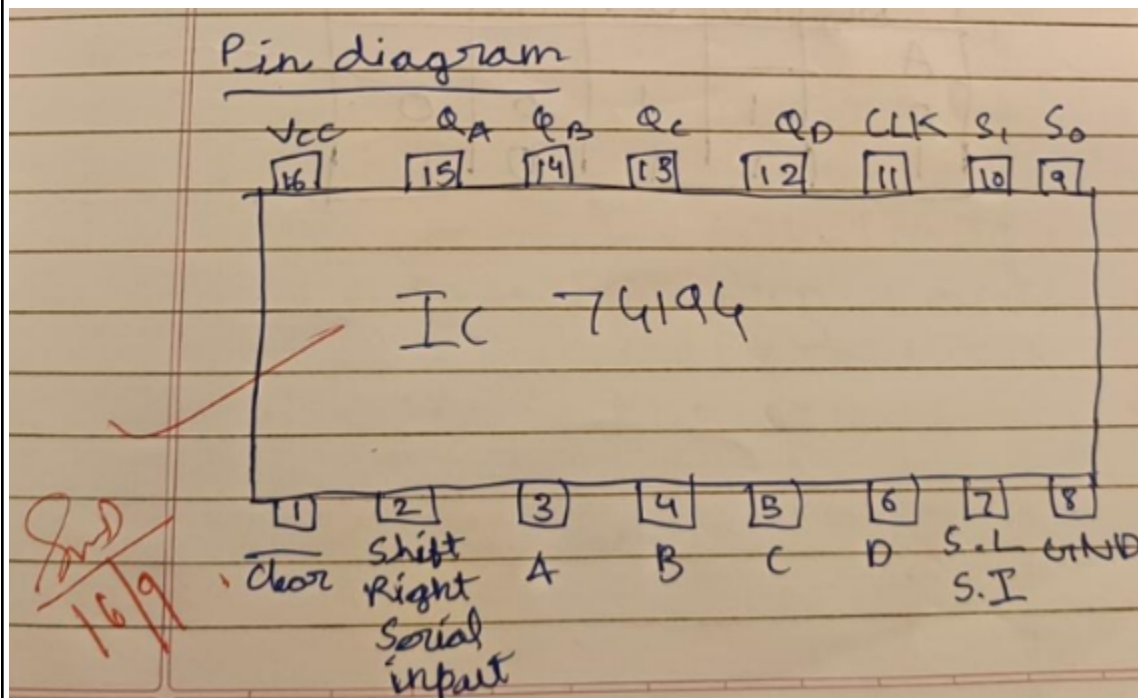 Pin diagram
Vcc QA QB Qc QD CLK S1 S0
16 15 14 13 12 11 10 9
Ic 74194
1 2 3 4 5 6 7 8
Clear Shift Right Serial inpait A B C D S.L S.I GND
16/9